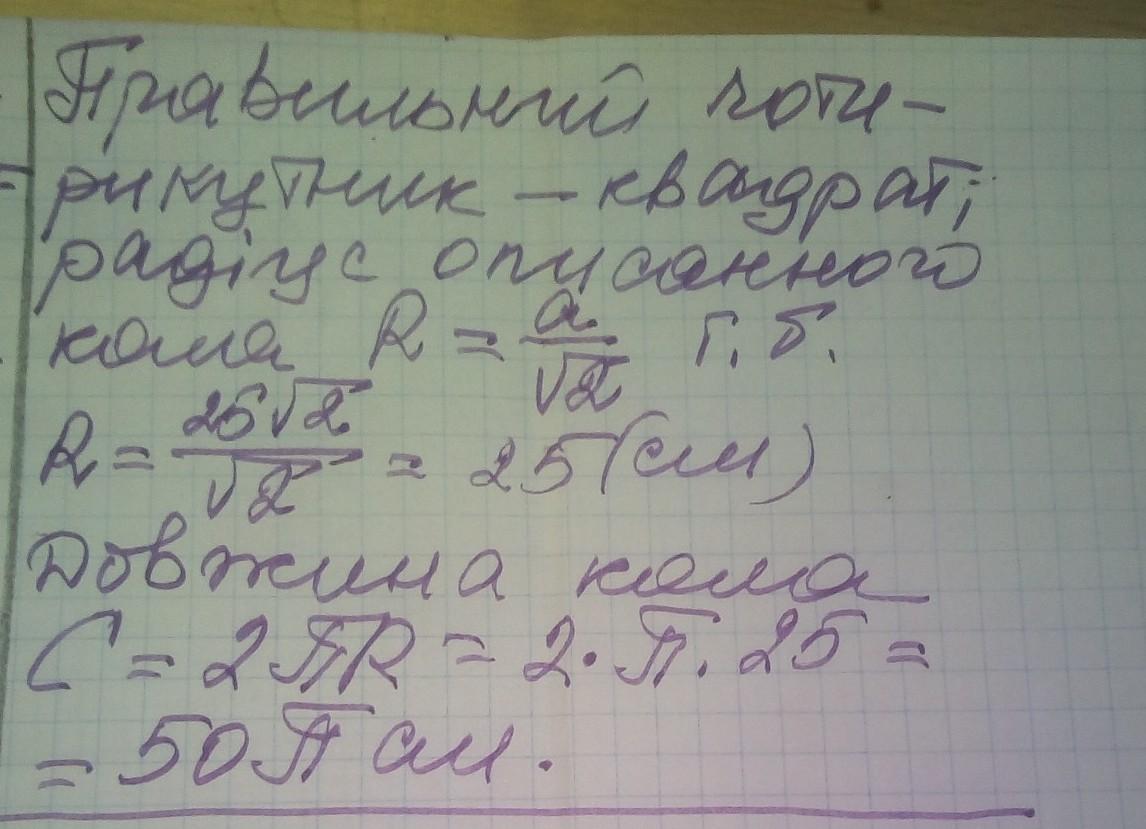 Правильний чоти-
рикутник – квадрат;
радіус описанного
кола R = a/√2 т. б.
R = 25√2/√2 = 25 (см)
Довжина кола
C = 2πR = 2·π·25 =
= 50π см.